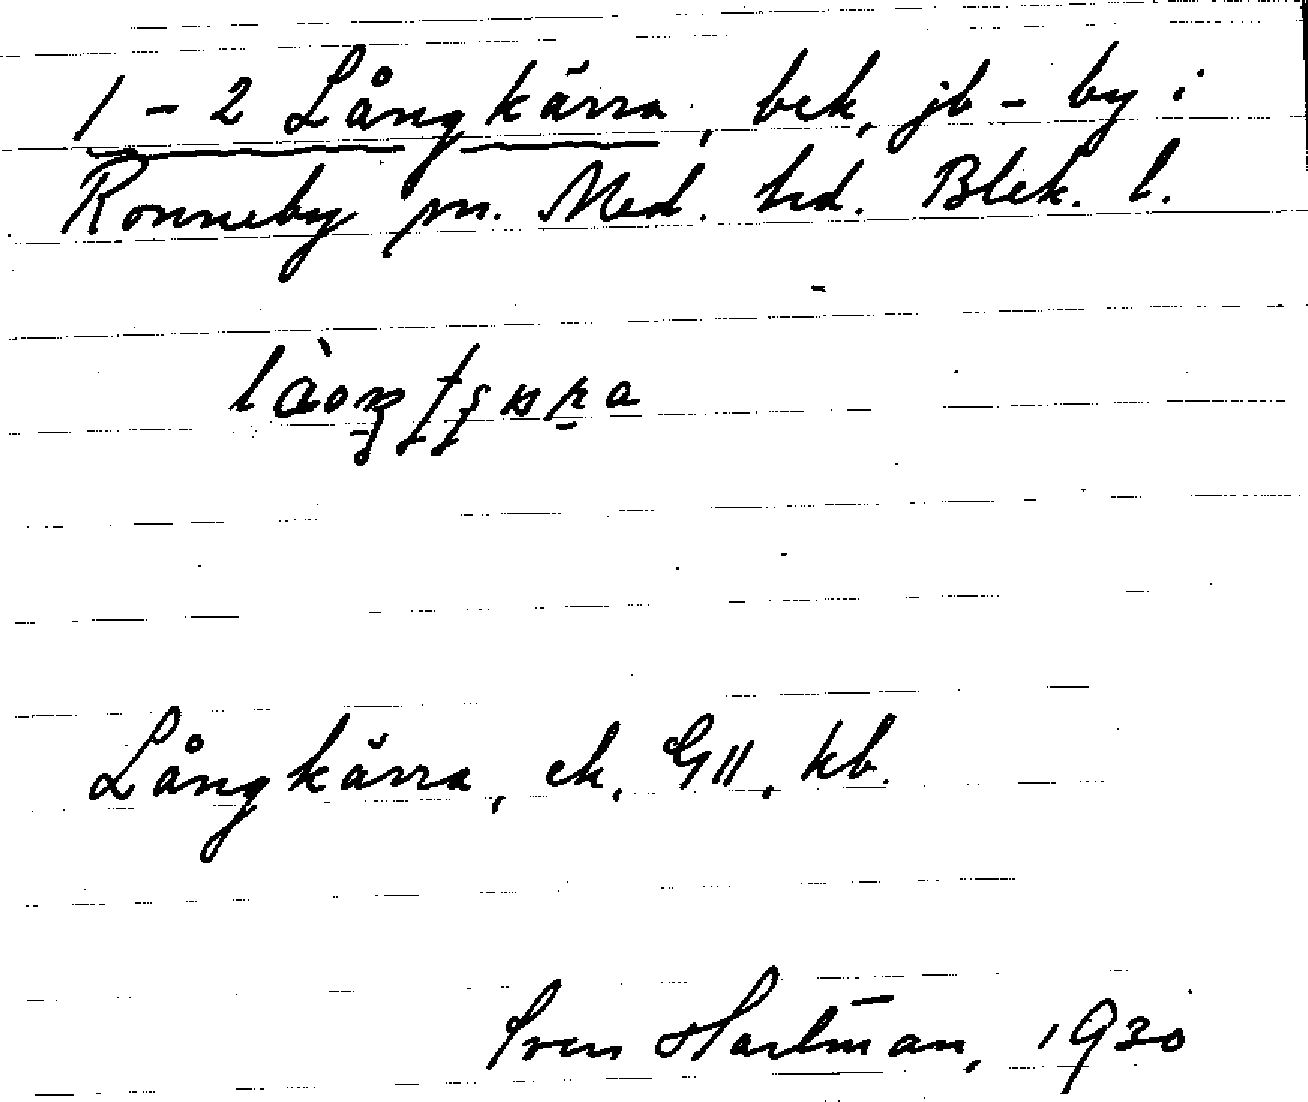 1 - 2 Långkärra, bek, jb - by i
Ronneby sn. Med. hd. Blek. l.
Långkärra, ek, GII, kb.
Sven Hartman, 1930